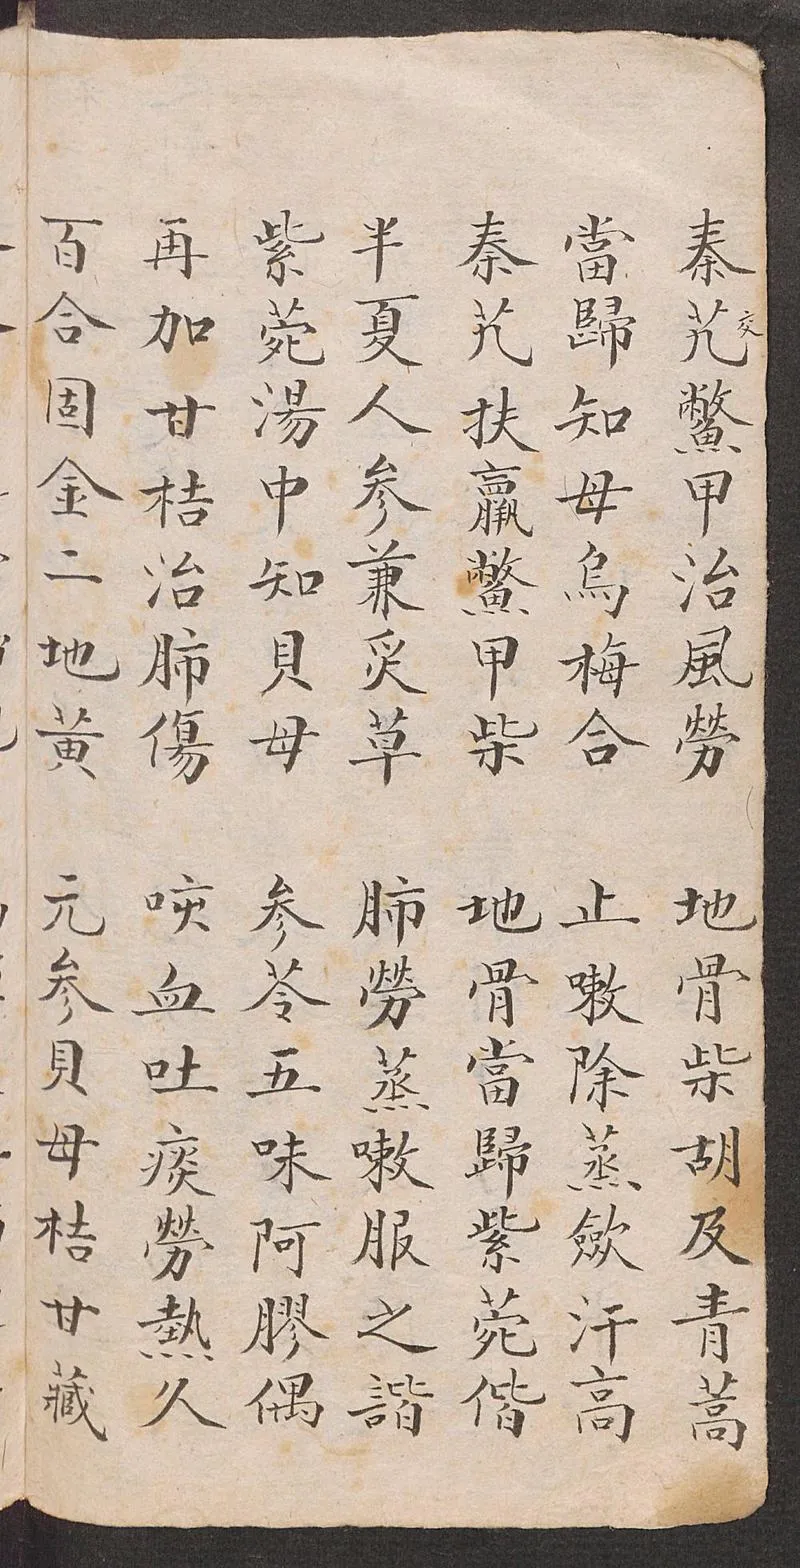 秦艽鱉甲治風勞　地骨柴胡及青蒿
交
當歸知母烏梅合　止嗽除蒸歛汗高
秦艽扶羸鱉甲柴　地骨當歸紫菀偕
半夏人参兼炙草　肺勞蒸嗽服之諧
紫菀湯中知貝母　参苓五味阿膠偶
再加甘桔治肺傷　咳血吐痰勞熱久
百合固金二地黃　元参貝母桔甘藏